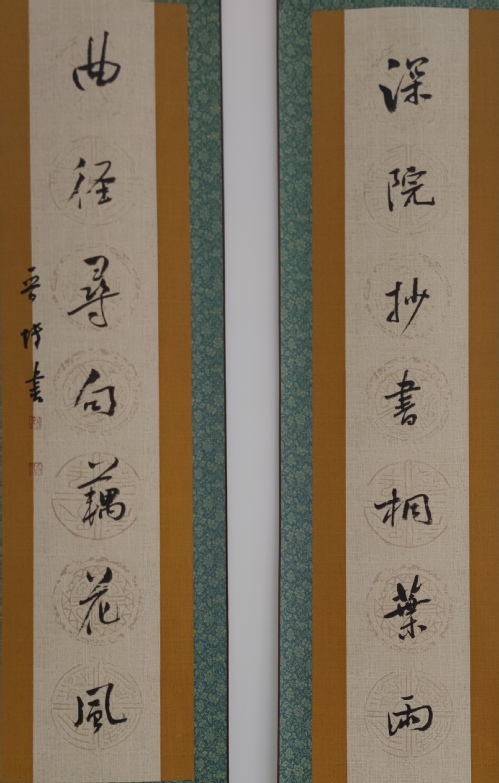 深院抄書桐葉雨
曲径尋句藕花風
晋坡書